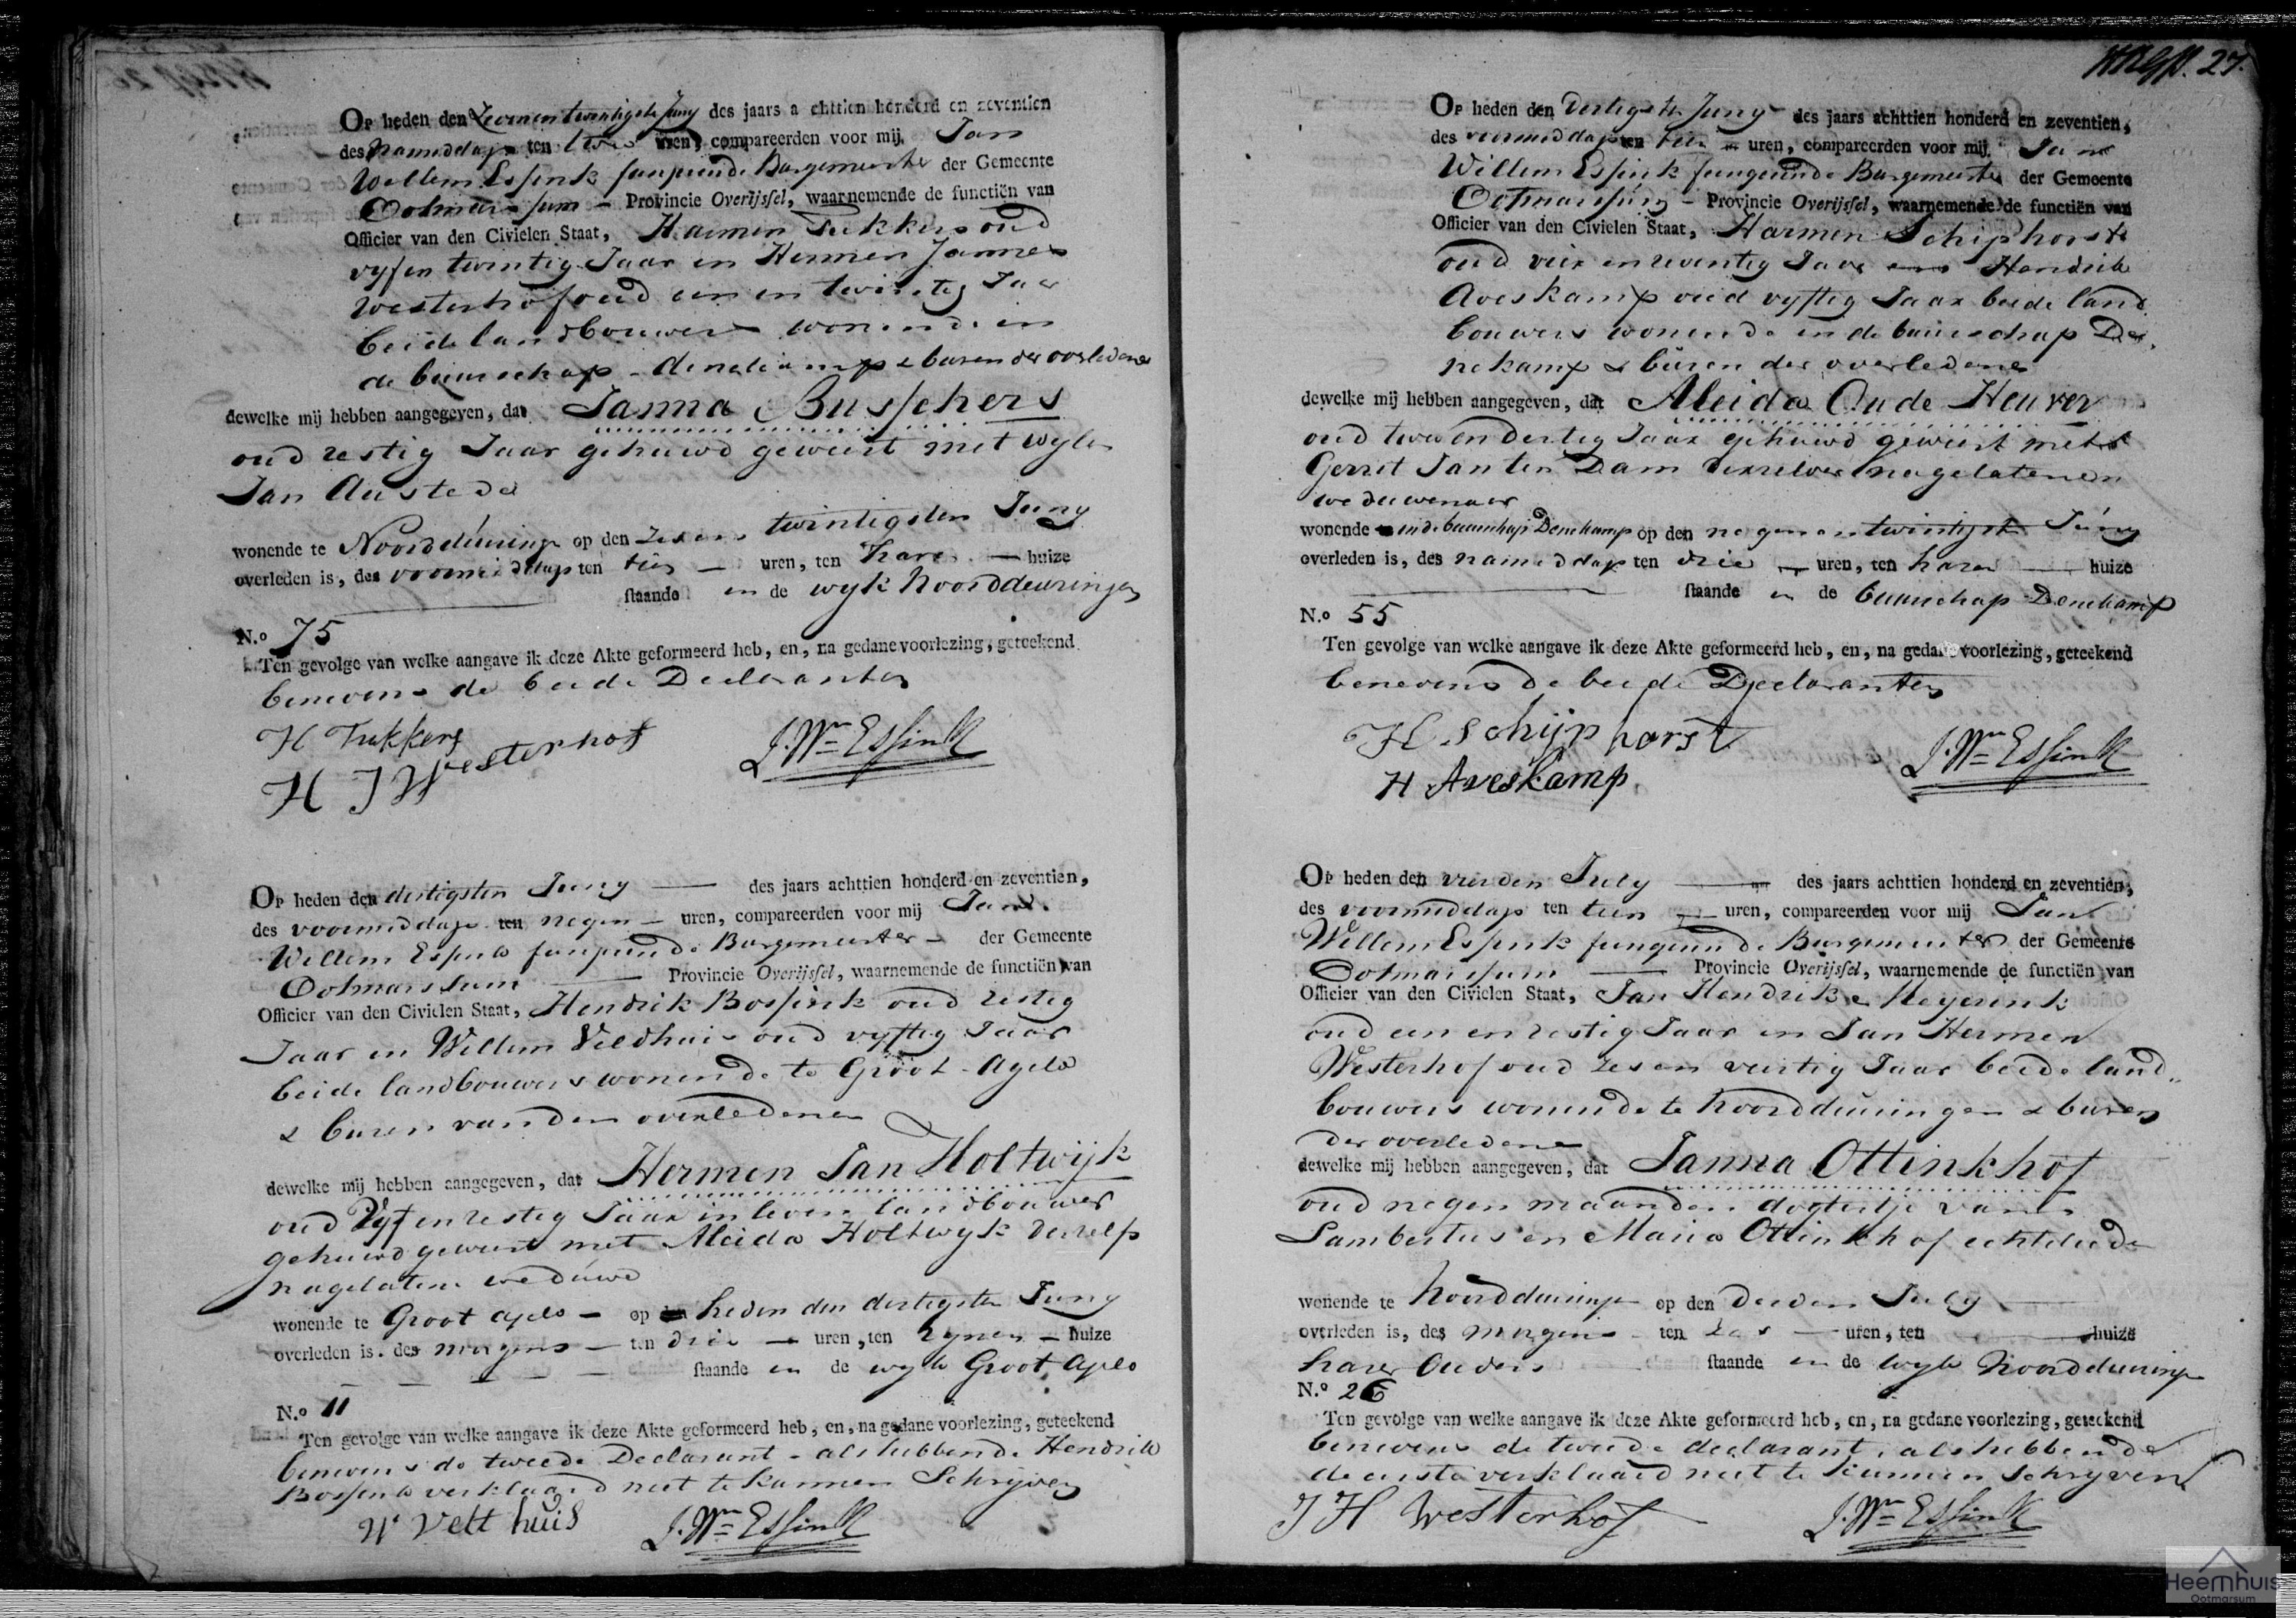 Op heden den Zeevenentwintigste Juny des jaars achttien honderd en zeventien
des namiddags ten twee uren, compareerden voor mij, Jan
Willem Essink fungeerende Burgemeester der Gemeente
Ootmarssum – Provincie Overijssel, waarnemende de functiën van
Officier van den Civielen Staat, Harmen Tukkers oud
vyfentwintig Jaar en Hermen Jannes
Westerhof oud een en twintig Jaar
beide landbouwers wonende in
de buurschap Denekamp & buren der overledene
dewelke mij hebben aangegeven, dat Janna Busschers
oud zestig Jaar gehuwd geweest met wylen
Jan Austede
wonende te Noorddeuringe op den zesen twintigsten Juny
overleden is, des voormiddags ten tien – uren, ten haren – huize
staande in de wyk Noorddeuringen
N.o 75
Ten gevolge van welke aangave ik deze Akte geformeerd heb, en, na gedane voorlezing, geteekend
benevens de beide Declaranten
H Tukkers
H J Westerhof
J. Wm Essink
Op heden den dertigsten Juny – des jaars achttien honderd en zeventien,
des voormiddags ten negen – uren, compareerden voor mij Jan
Willem Essink fungeerende Burgemeester – der Gemeente
Ootmarssum – Provincie Overijssel, waarnemende de functiën van
Officier van den Civielen Staat, Hendrik Bossink oud zestig
Jaar en Willem Veldhuis oud vyftig Jaar
beide landbouwers wonende te Groot-Agelo
& buren van den overledenen
dewelke mij hebben aangegeven, dat Hermen Jan Holtwijk
oud Vyfenzestig Jaar in leven landbouwer
gehuwd geweest met Aleida Holtwyk deszelfs
nagelaten weduwe
wonende te Groot agelo – op heden den dertigsten Juny
overleden is, des morgens – ten drie – uren, ten zynen – huize
staande in de wyk Groot Agelo
N.o 11
Ten gevolge van welke aangave ik deze Akte geformeerd heb, en, na gedane voorlezing, geteekend
benevens de tweede Declarant – als hebbende Hendrik
Bossink verklaard niet te kunnen Schryven
W Velt huis
J. Wm Essink
27.
Op heden den dertigste Juny des jaars achttien honderd en zeventien,
des voormiddags ten tien – uren, compareerden voor mij Jan
Willem Essink fungeerende Burgemeester der Gemeente
Ootmarssum – Provincie Overijssel, waarnemende de functiën van
Officier van den Civielen Staat, Harmen Schiphorst
oud vier en zeventig Jaar en Hendrik
Aveskamp oud vyftig Jaar beide land
bouwers wonende in de buurschap De
nekamp & buren der overledene
dewelke mij hebben aangegeven, dat Aleida Oude Heuver
oud twee en dertig Jaar gehuwd geweest met
Gerrit Jan ten Dam deszelver nagelatenen
weduwenaar
wonende in de buurschap Denekamp op den negenentwintigste Juny
overleden is, des namiddags ten drie – uren, ten haren – huize
staande in de buurschap Denekamp
N.o 55
Ten gevolge van welke aangave ik deze Akte geformeerd heb, en, na gedane voorlezing, geteekend
benevens de beide Declaranten
H Schijphorst
H Aveskamp
J. Wm Essink
Op heden den vierden July – des jaars achttien honderd en zeventien,
des voormiddags ten tien – uren, compareerden voor mij Jan
Willem Essink fungeerende Burgemeester der Gemeente
Ootmarssum – Provincie Overijssel, waarnemende de functiën van
Officier van den Civielen Staat, Jan Hendrik Meyerink
oud een en zestig Jaar en Jan Hermen
Westerhof oud zesen veertig Jaar beide land
bouwers wonende te Noorddeuringen & buren
der overledene
dewelke mij hebben aangegeven, dat Janna Ottinkhof
oud negen maanden dogtertje van
Lambertus en Maria Ottinkhof echtelieden
wonende te Noorddeuringe op den derden July
overleden is, des morgens ten zes – uren, ten – huize
harer Ouders staande in de wyk Noorddeuringe
N.o 26
Ten gevolge van welke aangave ik deze Akte geformeerd heb, en, na gedane voorlezing, geteekend
benevens de tweede declarant, als hebbende
de eerste verklaard niet te kunnen schryven
J H Westerhof
J. Wm Essink
Heemhuis
Ootmarsum